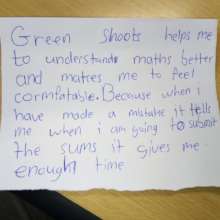 Green Shoots helps me
to understand maths better
and matres me to feel
cormfatable. Because when i
have made a mistake it tells
me when i am going to submit
the sums it gives me
enough time.